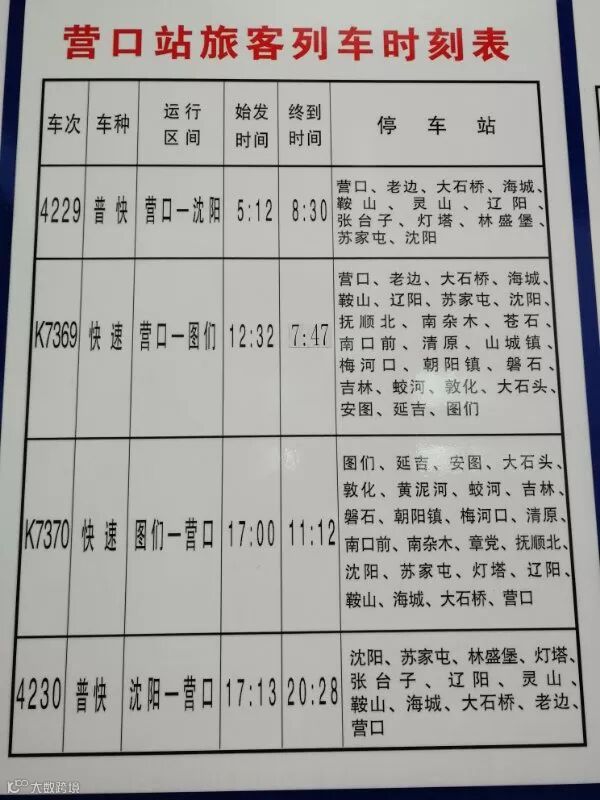 营口站旅客列车时刻表
车次 车种 运行区间 始发时间 终到时间 停车站
4229 普快 营口—沈阳 5:12 8:30
营口、老边、大石桥、海城、
鞍山、灵山、辽阳、
张台子、灯塔、林盛堡、
苏家屯、沈阳
K7369 快速 营口—图们 12:32 7:47
营口、老边、大石桥、海城、
鞍山、辽阳、苏家屯、沈阳、
抚顺北、南杂木、苍石、
南口前、清原、山城镇、
梅河口、朝阳镇、磐石、
吉林、蛟河、敦化、大石头、
安图、延吉、图们
K7370 快速 图们—营口 17:00 11:12
图们、延吉、安图、大石头、
敦化、黄泥河、蛟河、吉林、
磐石、朝阳镇、梅河口、清原、
南口前、南杂木、章党、抚顺北、
沈阳、苏家屯、灯塔、辽阳、
鞍山、海城、大石桥、营口
4230 普快 沈阳—营口 17:13 20:28
沈阳、苏家屯、林盛堡、灯塔、
张台子、辽阳、灵山、
鞍山、海城、大石桥、老边、
营口
大数跨境